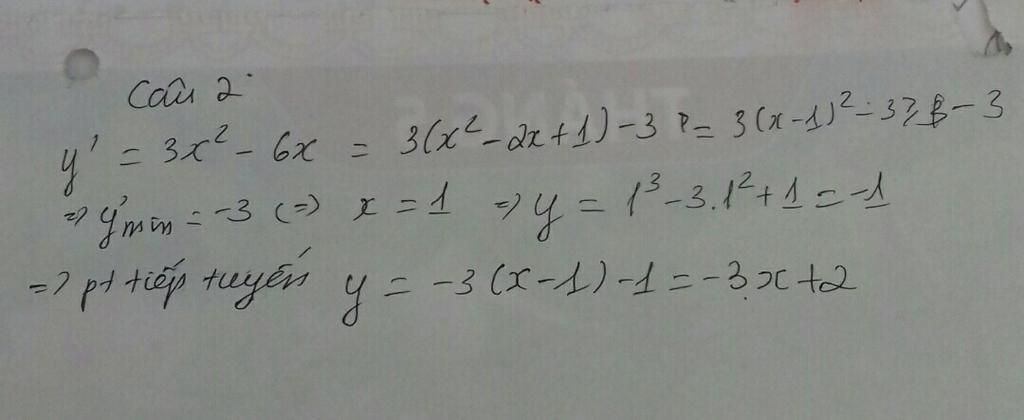 Câu 2
y' = 3x² - 6x = 3(x² - 2x + 1) - 3 = 3(x - 1)² - 3 ≥ - 3
=> y'min = -3 <=> x = 1 => y = 1³ - 3.1² + 1 = -1
=> pt tiếp tuyến y = -3(x - 1) - 1 = -3x + 2